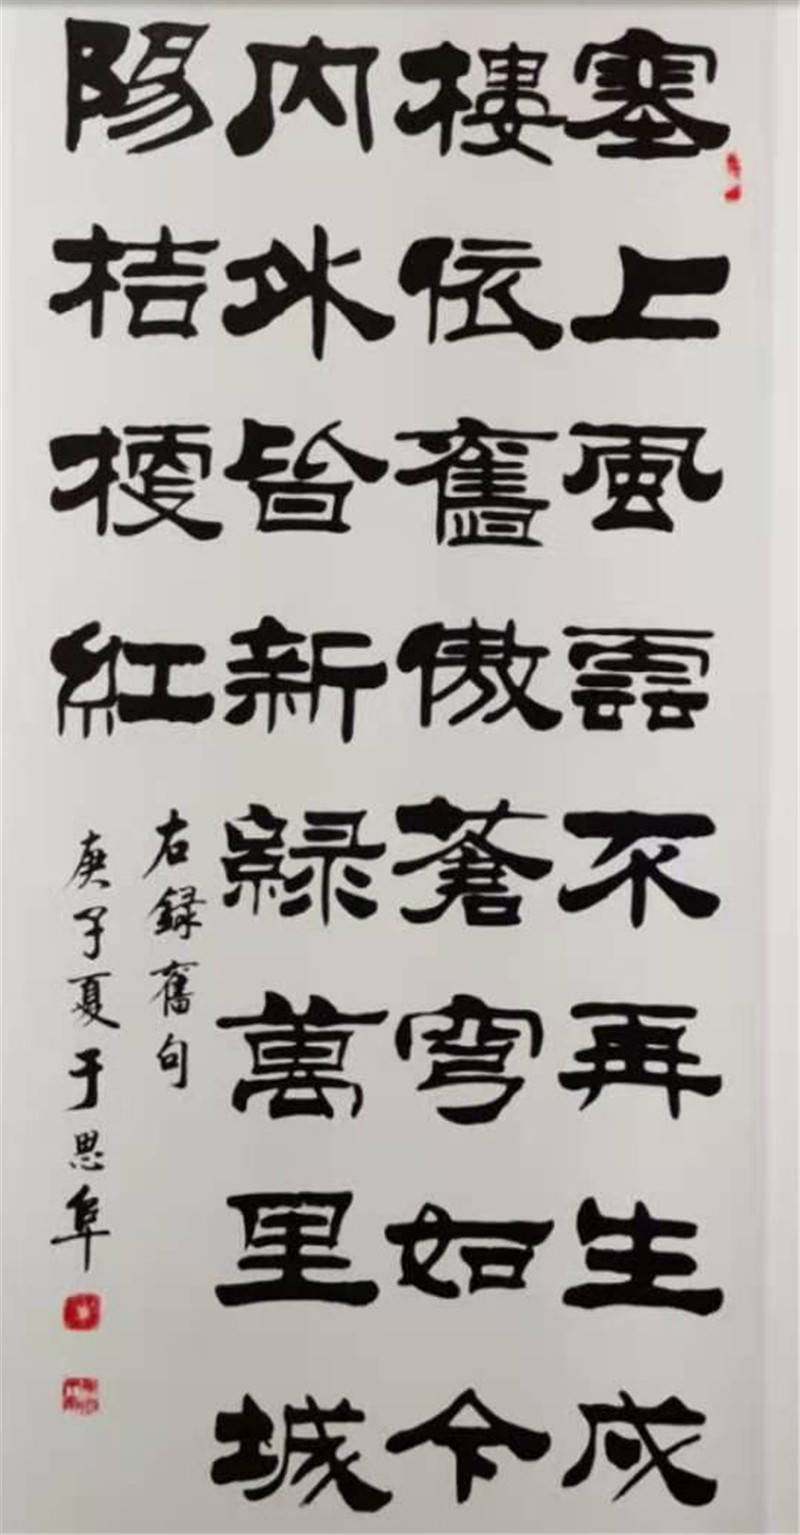 塞上風雲不再生戍
樓依舊傲蒼穹如今
內外皆新綠萬里城
陽桔梗紅
右録舊句
庚子夏于思阜